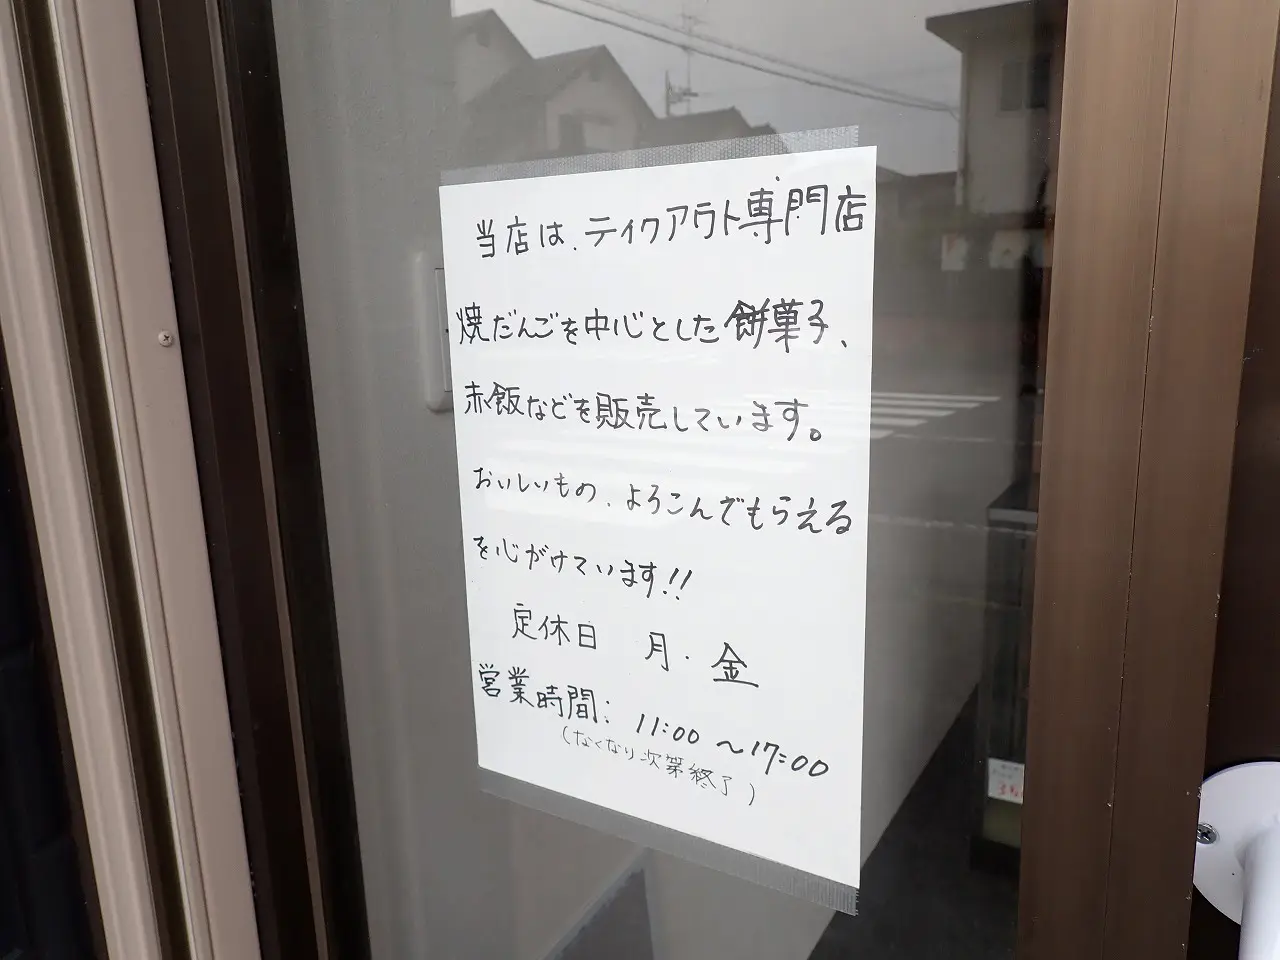 当店は、ティクアウト専門店
焼だんごを中心とした餅菓子、
赤飯などを販売しています。
おいしいもの、よろこんでもらえる
を心がけています!!
定休日 月・金
営業時間: 11:00 〜17:00
(なくなり次第終了)